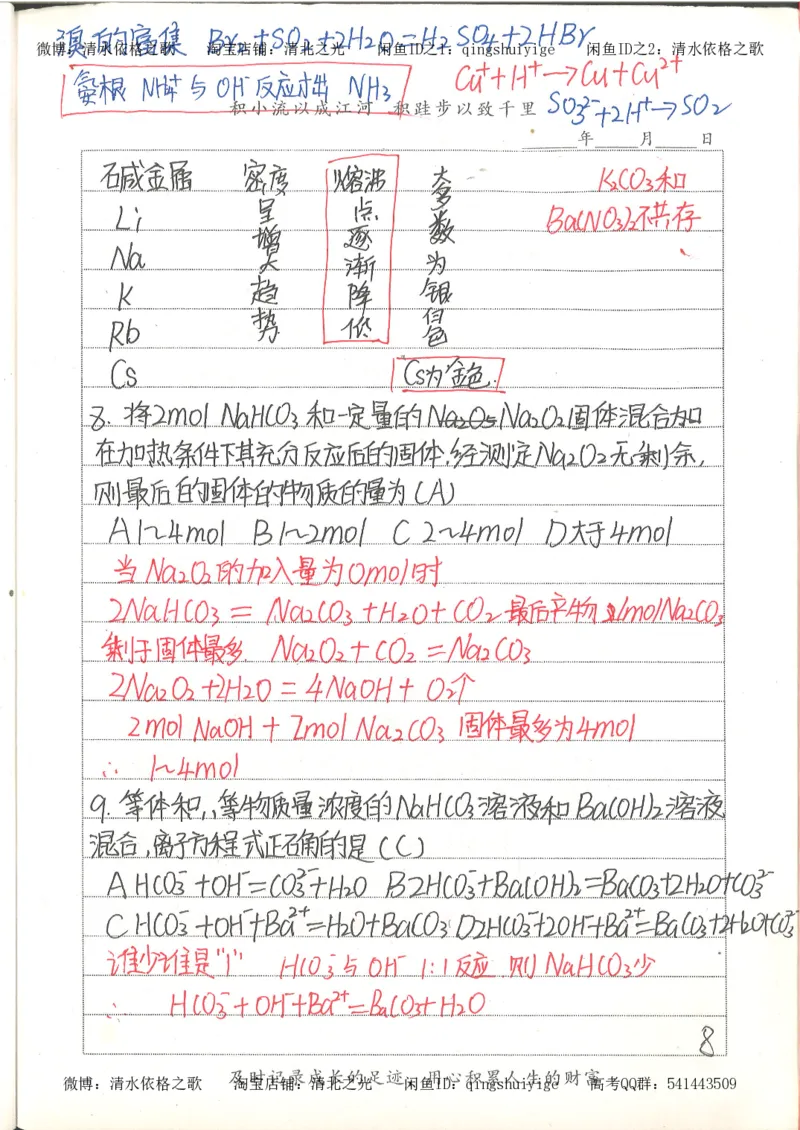 溴的富集 Br₂+SO₂+2H₂O=H₂SO₄+2HBr
微博：清水依格之歌 淘宝店铺：清北之光 闲鱼ID之1：qingshuiyige 闲鱼ID之2：清水依格之歌
氨根 NH₄⁺与OH⁻反应才出NH₃ Cu⁺+H⁺→Cu+Cu²⁺
积小流以成江河 积跬步以致千里 SO₃²⁻+2H⁺→SO₂
年 月 日
碱金属 密度呈增大趋势 熔沸点逐渐降低 大多数为银白色 K₂CO₃和
Li Ba(NO₃)₂不共存
Na
K
Rb
Cs Cs为金色.
8. 将2mol NaHCO₃和一定量的Na₂O₂固体混合加
在加热条件下其充分反应后的固体,经测定Na₂O₂无剩余,
则最后的固体的物质的量为(A)
A 1~4mol B 1~2mol C 2~4mol D 大于4mol
当Na₂O₂的加入量为0mol时
2NaHCO₃=Na₂CO₃+H₂O+CO₂ 最后产物 1molNa₂CO₃
剩于固体最多. Na₂O₂+CO₂=Na₂CO₃
2Na₂O₂+2H₂O=4NaOH+O₂↑
2mol NaOH + 2mol Na₂CO₃ 固体最多为4mol
∴ 1~4mol
9. 等体积,、等物质量浓度的NaHCO₃溶液和Ba(OH)₂溶液
混合,离子方程式正确的是(C)
A HCO₃⁻+OH⁻=CO₃²⁻+H₂O B 2HCO₃⁻+Ba(OH)₂=BaCO₃+2H₂O+CO₃²⁻
C HCO₃⁻+OH⁻+Ba²⁺=H₂O+BaCO₃ D 2HCO₃⁻+2OH⁻+Ba²⁺=BaCO₃+2H₂O+CO₃²⁻
谁少谁是"1" HCO₃⁻与OH⁻ 1:1反应 则NaHCO₃少
∴ HCO₃⁻+OH⁻+Ba²⁺=BaCO₃+H₂O
8
及时记录成长的足迹 用心积累人生的财富
微博：清水依格之歌 淘宝店铺：清北之光 闲鱼ID之1：qingshuiyige 高考QQ群：541443509